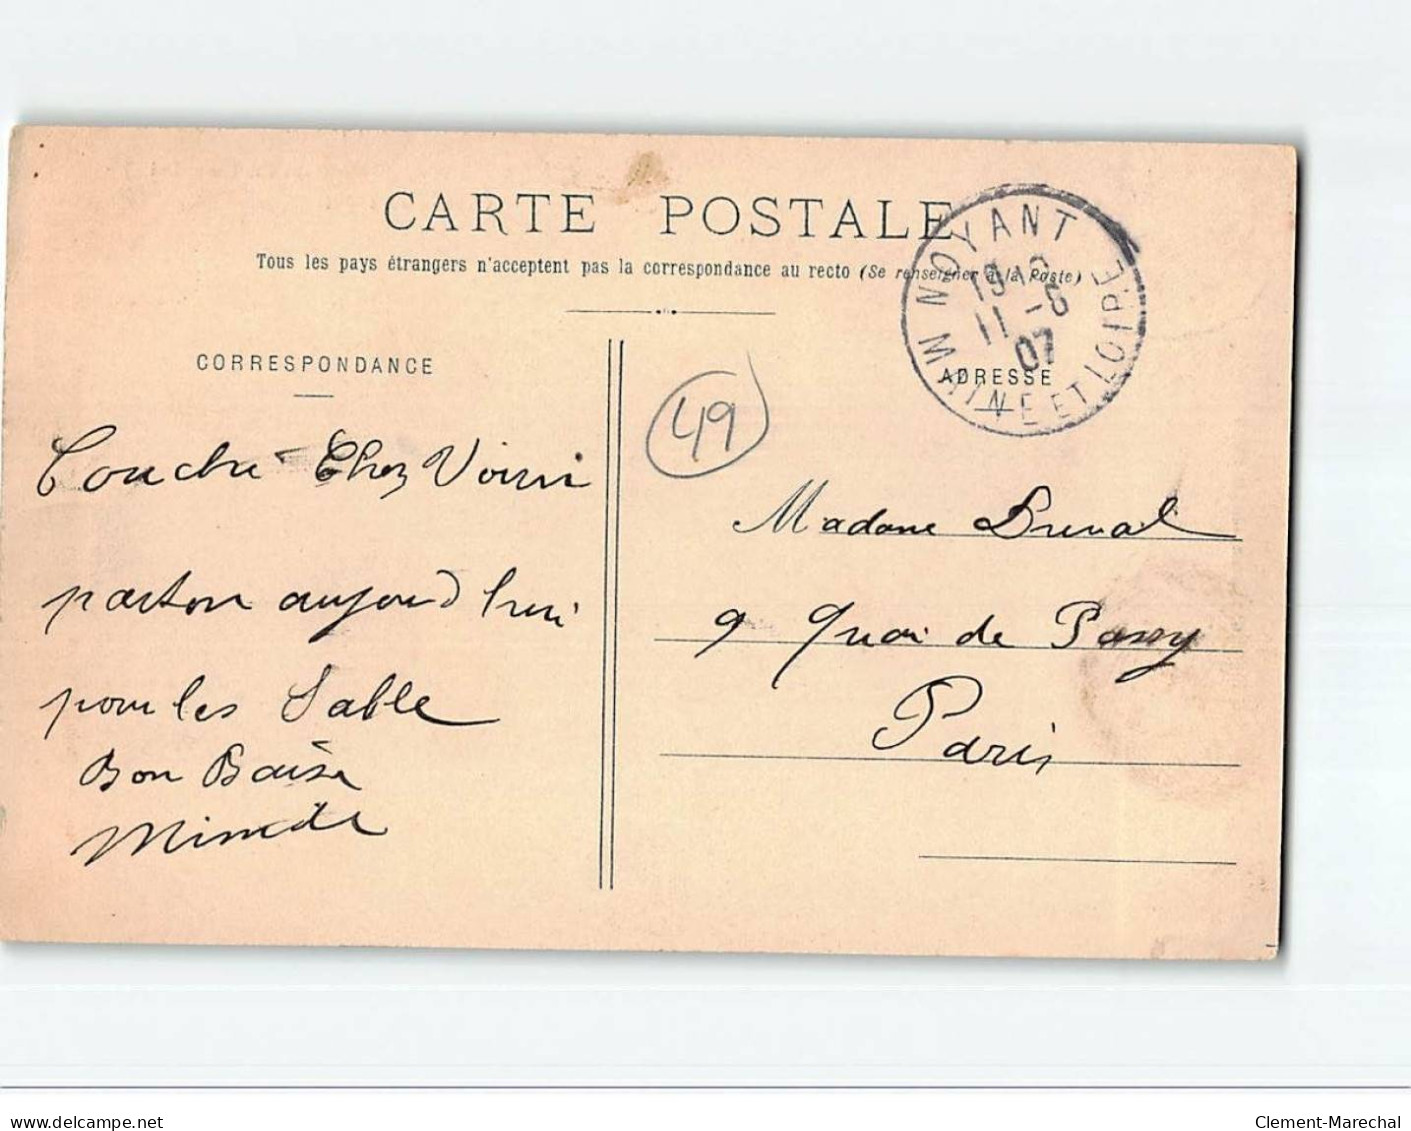 CARTE POSTALE
Tous les pays étrangers n'acceptent pas la correspondance au recto (Se renseigner à la Poste)
NOYANT
11 -6
07
MAINE ET LOIRE
CORRESPONDANCE
ADRESSE
49
Couché Chez Voisin
parton aujourd hui
pour les Sable
Bon Baise
Madame Duval
9 Quai de Passy
Paris
www.delcampe.net
Clement-Marechal